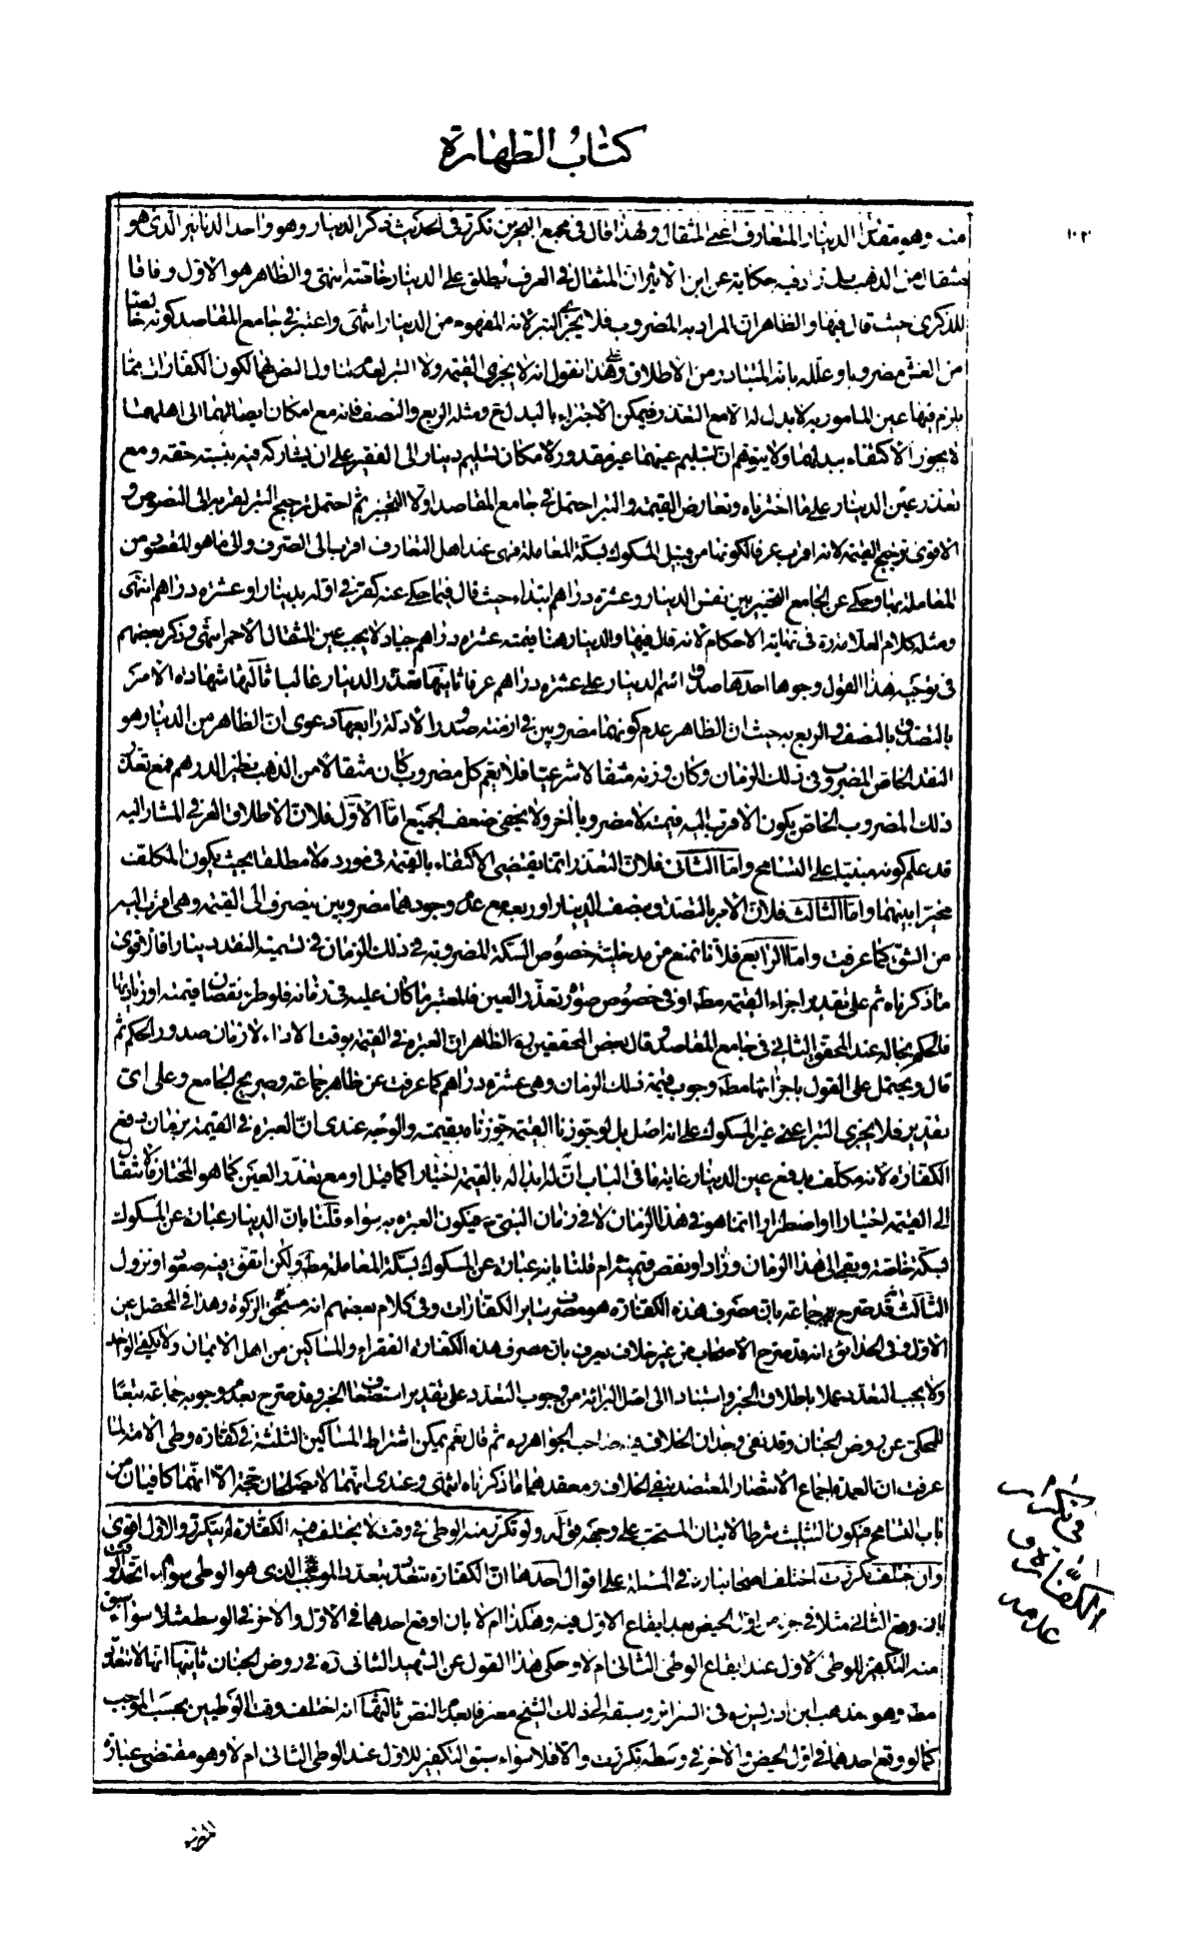 كتاب الطهارة
١٠٢
منه وهو مقدار الدينار المتعارف اعنى المثقال ولهذا قال فى مجمع البحرين تكرّر فى الحديث ذكر الدينار وهو واحد الدنانير الّذى هو
مثقال من الذهب بل زاد فيه حكاية عن ابن الاثير انّ المثقال فى العرف يطلق على الدينار خاصّة انتهى والظاهر هو الاوّل وفاقا
للذكرى حيث قال فيها والظاهر انّ المراد به المضروب فلا يجزى التبر لانّه المفهوم من الدينار انتهى واعتبر فى جامع المقاصد كونه خالصا
من الغش مضروبا وعلّله بانه المتبادر من الاطلاق وعلى هذا نقول انه لا يجزى القيمة ولا التبر لعدم تناول النص لهما لكون الكفارات ممّا
يلزم فيها عين المامور به لا بدل له الا مع التعذر فيمكن الاجتزاء بالبدل ح ومثله الربع والنصف فانه مع امكان ايصالهما الى اهلهما
لا يجوز الاكتفاء ببدلهما ولا يتوهم انّ تسليم عينهما غير مقدور لامكان تسليم دينار الى الفقير على ان يشاركه فيه بنسبة حقّه ومع
تعذر عين الدينار على ما اخترناه وتعارض القيمة والتبر احتمل فى جامع المقاصد اولا التخيير ثم احتمل ترجيح التبر لقربه الى النصوص و
الاقوى ترجيح القيمة لانه اقرب عرفا لكونها من قبيل المسكوك بسكّة المعاملة فهى عند اهل التعارف اقرب الى الصّرف والى ما هو المقصود من
المعاملة بها وحكى عن الجامع التخيير بين نفس الدينار وعشرة دراهم ابتداء حيث قال فيما حكى عنه كفّر فى اوله بدينار او عشرة دراهم انتهى
ومثله كلام العلامة ره فى نهاية الاحكام لانه قال فيها والدينار هنا قيمته عشرة دراهم جياد لا يجب عين المثقال الاحمر انتهى وذكر بعضهم
فى توجيه هذا القول وجوها احدها صدق اسم الدينار على عشرة دراهم عرفا ثانيها تعذّر الدينار غالبا ثالثها شهادة الامر
بالتصدق بالنصف والربع به حيث ان الظاهر عدم كونهما مضروبين فى ازمنة صدور الادلة رابعها دعوى انّ الظاهر من الدينار هو
النقد الخاص المضروب فى ذلك الزمان وكان وزنه مثقالا شرعيّا فلا يعم كل مضروب كان مثقالا من الذهب نظير الدرهم فمع تعذّر
ذلك المضروب الخاص يكون الاقرب اليه قيمته لا مضروبا اخر ولا يخفى ضعف الجميع امّا الاوّل فلانّ الاطلاق العرفى المشار اليه
قد علم كونه مبنيا على التسامح وامّا الثانى فلانّ التعذر انّما يقتضى الاكتفاء بالقيمة فى مورده لا مطلقا بحيث يكون المكلف
مخيّرا بينهما وامّا الثالث فلانّ الامر بالتصدق بنصف الدينار او ربعه مع عدم وجودهما مضروبين ينصرف الى القيمة وهى اقرب اليه
من الشقّ كما عرفت وامّا الرّابع فلانّا نمنع من مدخلية خصوص السكّة المضروبة فى ذلك الزمان فى تسمية النقد دينارا فالاقوى
ما ذكرناه ثم على تقدير اجزاء القيمة مط او فى خصوص صورة تعذّر العين فالمعتبر ما كان عليه فى زمانه فلو طرء نقصان قيمته او زيادتها
فالحكم بحاله عند المحقق الثانى فى جامع المقاصد وقال بعض المحققين ره الظاهر انّ العبرة فى القيمة بوقت الاداء لا زمان صدور الحكم ثم
قال ويحتمل على القول باجزائها مط وجوب قيمة ذلك الزمان وهى عشرة دراهم كما عرفت عن ظاهر جماعة وصريح الجامع وعلى اىّ
تقدير فلا يجزى التبر اعنى غير المسكوك على انه اصل بل لو جوّزنا القيمة جوّزناه بقيمته والوجه عندى انّ العبرة فى القيمة بزمان دفع
الكفّارة لانه مكلّف بدفع عين الدينار غاية ما فى الباب انّ له ابداله بالقيمة اختيارا كما قيل او مع تعذّر العين كما هو المختار فالانتقال
الى القيمة اختيارا او اضطرارا انّما هو فى هذا الزمان لا فى زمان النبى ص فيكون العبرة به سواء قلنا بان الدينار عبارة عن المسكوك
بسكّة خاصة وبقى الى هذا الزمان وزاد او نقص قيمته ام قلنا بانه عبارة عن المسكوك بسكّة المعاملة مط ولكن اتفق فيه صعود او نزول
الثالث قد صرّح جماعة بان مصرف هذه الكفارة هو مصرف ساير الكفارات وفى كلام بعضهم انه مستحق الزكوة وهذا فى المحصّل عين
الاوّل وفى الحدائق انه قد صرّح الاصحاب من غير خلاف يعرف بان مصرف هذه الكفارة الفقراء والمساكين من اهل الايمان ولا يكفى الواحد
ولا يجب التعدد عملا باطلاق الخبر واستنادا الى اصل البرائة من وجوب التعدد على تقدير استضعاف الخبر وقد صرّح بعدم وجوبه جماعة تبعا
للمحكىّ عن روض الجنان وقد نفى وجدان الخلاف فيه صاحب الجواهر ره ثم قال نعم يمكن اشتراط المساكين الثلثة فى كفارة وطى الامة لما
عرفت انّ العمدة اجماع الانتصار المعتضد بنفى الخلاف ومعقدهما ما ذكرناه انتهى وعندى انّهما لا يصلحان حجّة الّا انّهما كافيان من
باب التسامح فيكون التثليث شرطا لاتيان المستحب على وجهه قوله ولو تكرّر منه الوطى فى وقت لا يختلف فيه الكفّارة لم يتكرّر والاوّل اقوى
وان اختلف تكرّرت اختلف اصحابنا ره فى المسئلة على اقوال احدها انّ الكفارة تتعدّد بتعدد الموجب الذى هو الوطى سواء اتّحد الوقت
بان وقع الثانى مثلا فى جزء من اوّل الحيض بعد ايقاع الاوّل فيه وهكذا ام لا بان اوقع احدهما فى الاوّل والاخر فى الوسط مثلا سواء سبق
منه التكفير للوطى الاوّل عند ايقاع الوطى الثانى ام لا وحكى هذا القول عن الشهيد الثانى ره فى روض الجنان ثانيها انها لا تتعدّد
مط وهو مذهب ابن ادريس ره فى السرائر وسبقه الى ذلك الشيخ معترفا بعدم النص ثالثها انه اختلف وقت الوطيين بحسب الموجب
كما لو وقع احدهما فى اوّل الحيض والاخر فى وسطه تكرّرت والّا فلا سواء سبق التكفير للاوّل عند الوطى الثانى ام لا وهو مقتضى عبارة
فى تكرار
الكفّارة و
عدمه